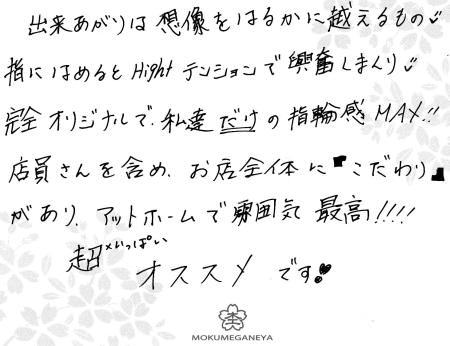 出来あがりは想像をはるかに越えるもの♪
指にはめるとHightテンションで興奮しまくり♪
完全オリジナルで、私達だけの指輪感MAX!!
店員さんを含め、お店全体に『こだわり』
があり、アットホームで雰囲気 最高!!!!
超×いっぱい
オススメ です!
MOKUMEGANEYA